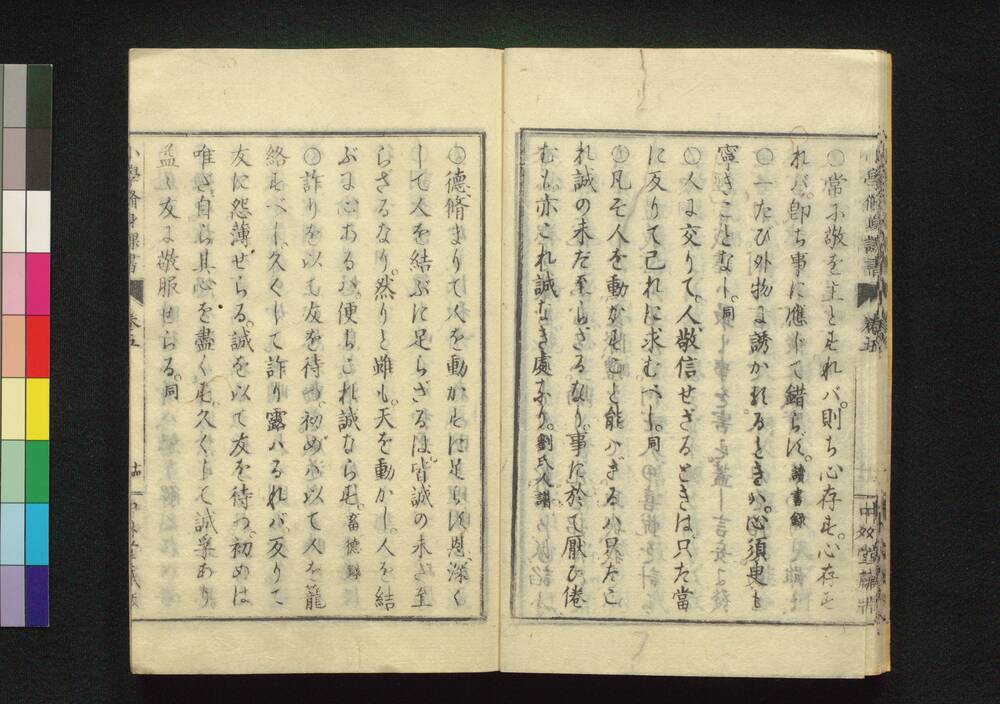 ○常に敬を主とすれバ。則ち心存す。心存す
れバ。卽ち事に應じて錯らず。讀書録
○一たび外物に誘かれるときハ。心須臾も
寧きことなし。同
○人に交りて。人敬信せざるときは。只た當
に反りて己れに求むべし。同
○凡そ人を動かすこと能ハざるハ。只たこ
れ誠の未だ至らざるなり。事に於て厭ひ倦
むも亦これ誠なき處なり。劉氏人譜
小學脩身課書
卷五
○德脩まりて人を動かすに足らず。恩深く
して人を結ぶに足らざるは。皆誠の未だ至
らざるなり。然りと雖も。天を動かし。人を結
ぶに心あるハ。便ちこれ誠ならず。畜德録
○詐りを以て友を待つ。初めハ以て人を籠
絡すべし。久くして詐り露ハるれバ。反りて
友に怨薄せらる。誠を以て友を待つ。初めは
唯だ自ら其心を盡くす。久くして誠孚あり
益々友に敬服せらる。同
小學脩身課書
卷五